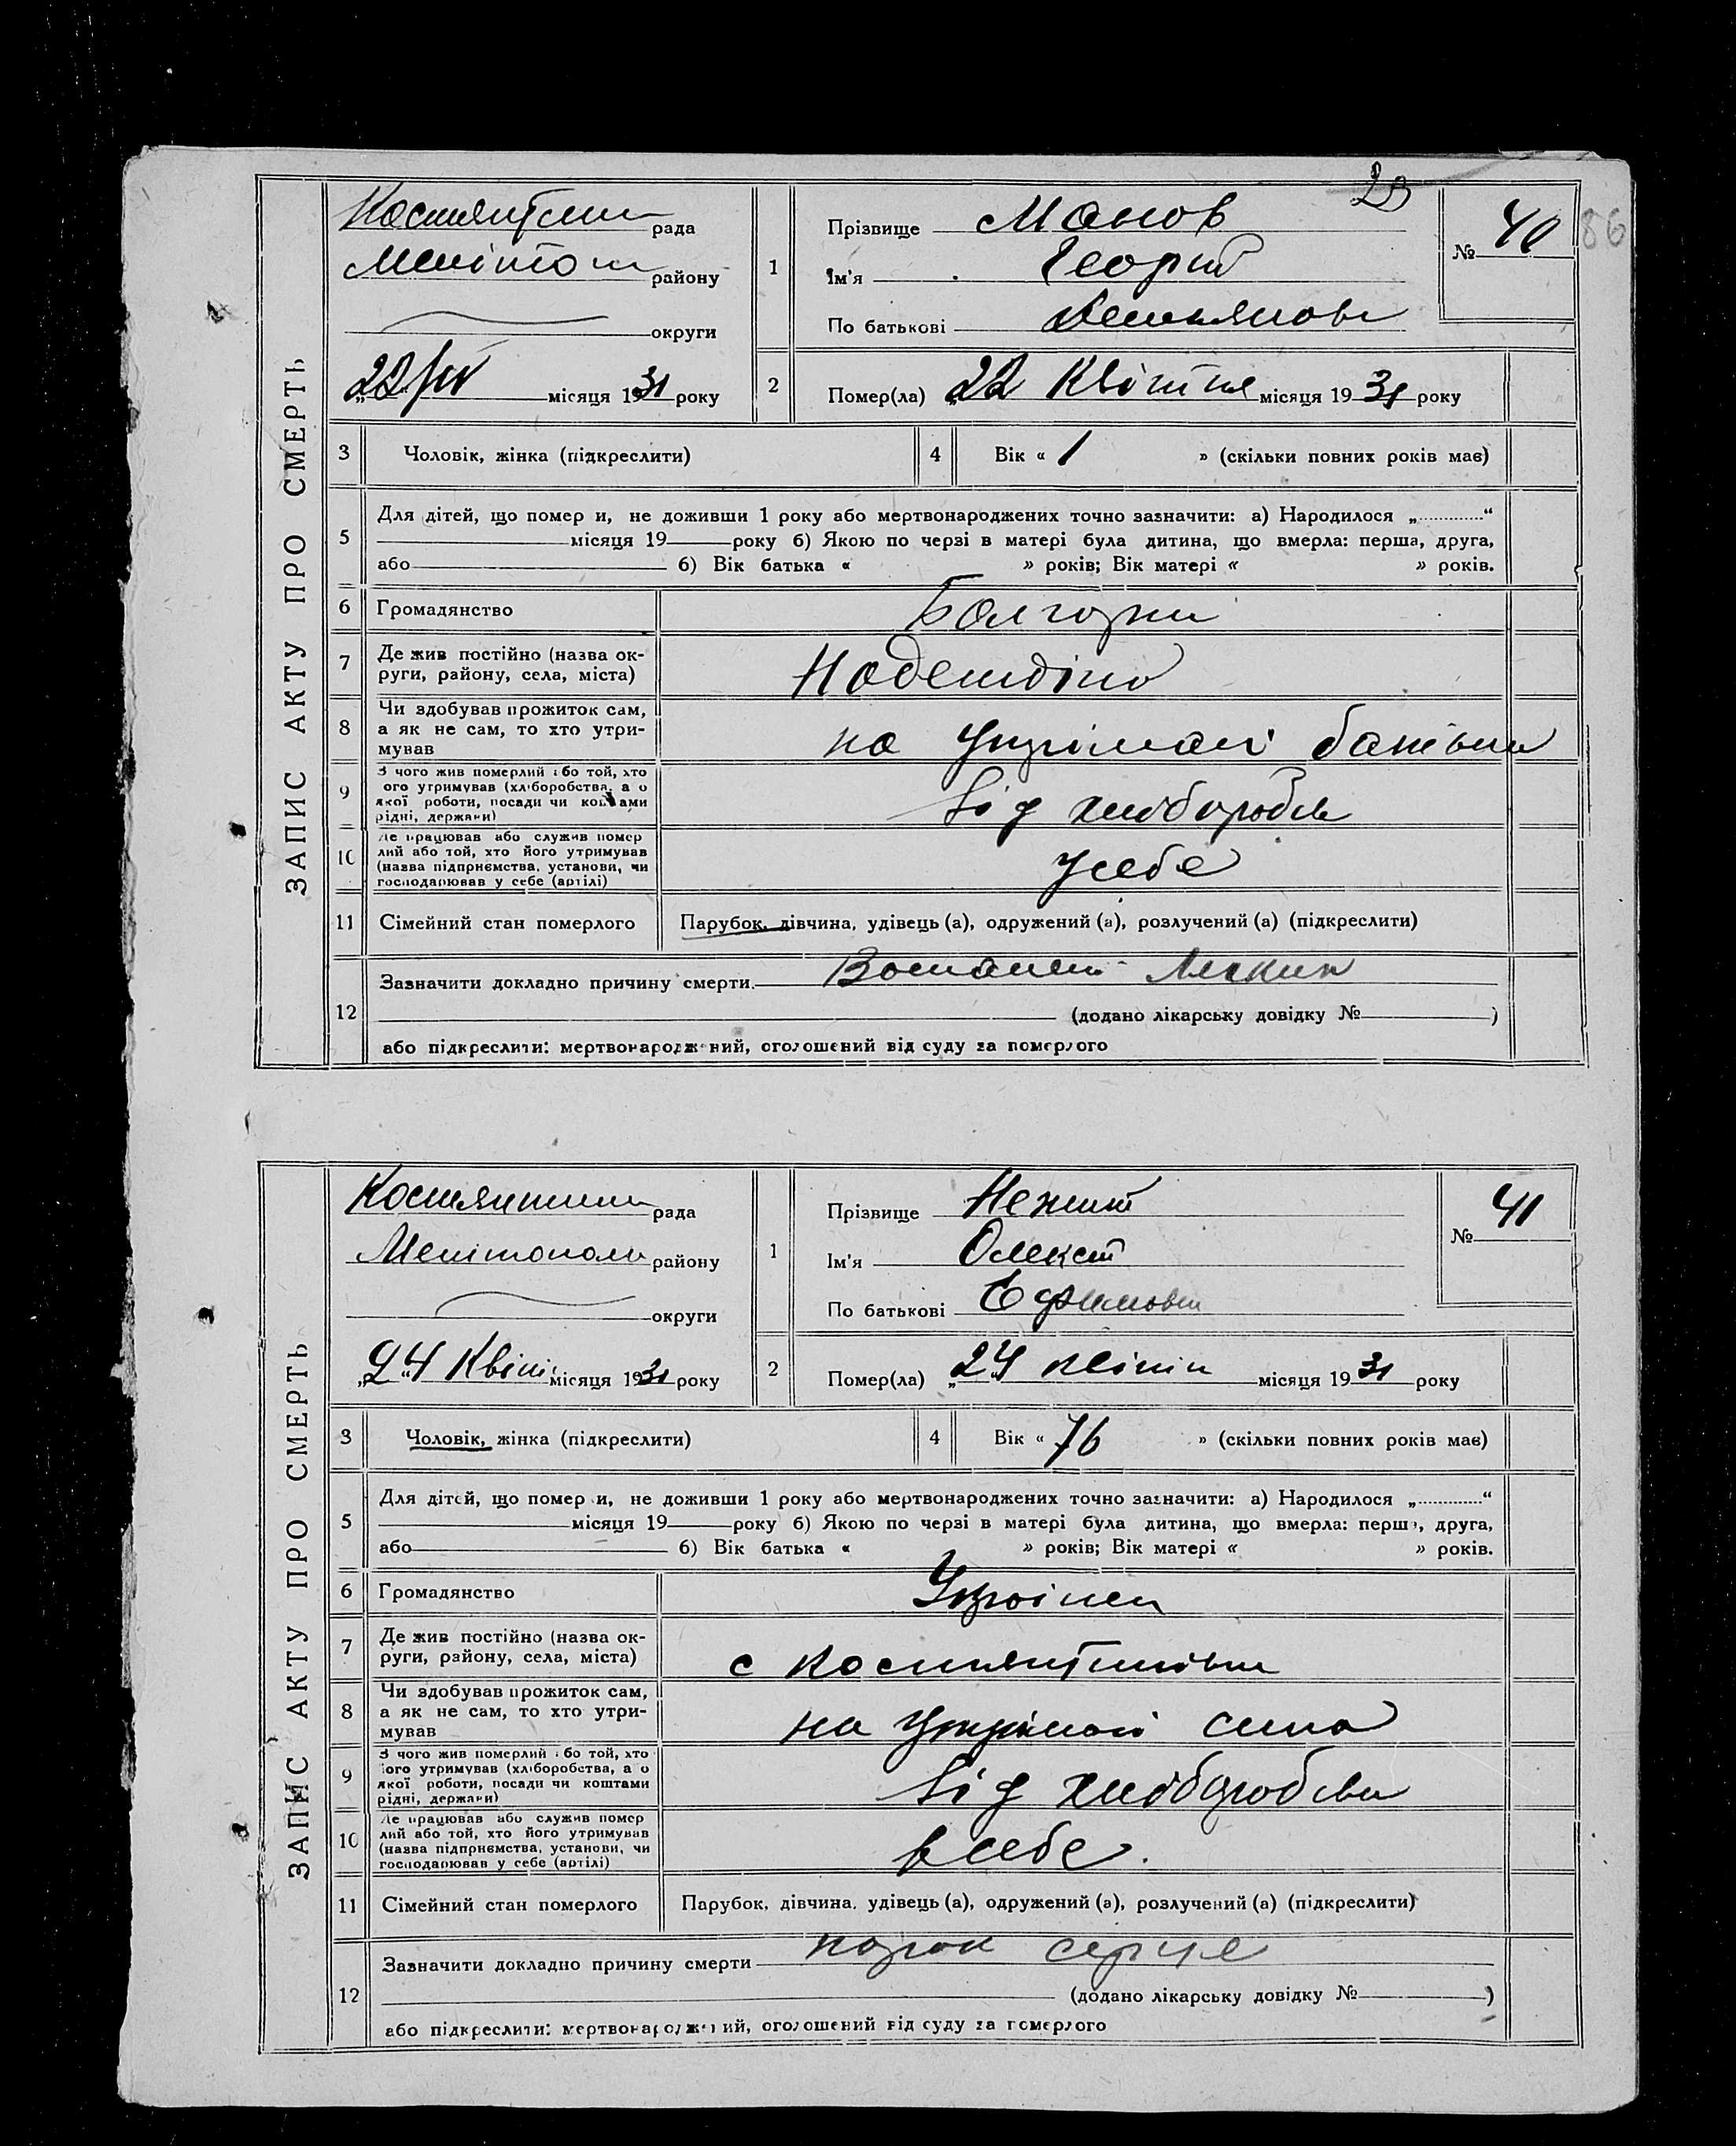 ЗАПИС АКТУ ПРО СМЕРТЬ
рада
району
округи
22/IV місяця 1931 року
1
Прізвище Манов
Ім'я Георгій
По батькові
№ 40
86
2
Помер(ла) „22 Квітня місяця 1931 року
3 Чоловік, жінка (підкреслити)
4 Вік « 1 » (скільки повних років має)
5 Для дітей, що помер и, не доживши 1 року або мертвонароджених точно зазначити: а) Народилося „............“
місяця 19 року б) Якою по черзі в матері була дитина, що вмерла: перша, друга,
або б) Вік батька « » років; Вік матері « » років.
6 Громадянство Болгарин
7 Де жив постійно (назва ок-
руги, району, села, міста) Надеждіно
8 Чи здобував прожиток сам,
а як не сам, то хто утри-
мував на утрімані батьків
9 З чого жив померлий або той, хто
ого утримував (хліборобства, а о
якої роботи, посади чи коштами
рідні, держави) від хліборобів
10 Де працював або служив помер
лий або той, хто його утримував
(назва підприємства, установи, чи
господарював у себе (артілі) у себе
11 Сімейний стан померлого Парубок, дівчина, удівець (а), одружений (а), розлучений (а) (підкреслити)
12 Зазначити докладно причину смерти.
(додано лікарську довідку № )
або підкреслити: мертвонароджений, оголошений від суду за померлого
ЗАПИС АКТУ ПРО СМЕРТЬ
рада
Мелітополь району
округи
„24“ Квітн місяця 1931 року
1
Прізвище
Ім'я Олексій
По батькові Єфимович
№ 41
2
Помер(ла) „24 квітня місяця 1931 року
3 Чоловік, жінка (підкреслити)
4 Вік « 76 » (скільки повних років має)
5 Для дітей, що помер и, не доживши 1 року або мертвонароджених точно зазначити: а) Народилося „............“
місяця 19 року б) Якою по черзі в матері була дитина, що вмерла: перша, друга,
або б) Вік батька « » років; Вік матері « » років.
6 Громадянство Українец
7 Де жив постійно (назва ок-
руги, району, села, міста) с Костянтинівка
8 Чи здобував прожиток сам,
а як не сам, то хто утри-
мував на утрімані сина
9 З чого жив померлий або той, хто
його утримував (хліборобства, а о
якої роботи, посади чи коштами
рідні, держави) від хліборобства
10 Де працював або служив помер
лий або той, хто його утримував
(назва підприємства, установи, чи
господарював у себе (артілі) в себе.
11 Сімейний стан померлого Парубок, дівчина, удівець (а), одружений (а), розлучений (а) (підкреслити)
12 Зазначити докладно причину смерти порок серце
(додано лікарську довідку № )
або підкреслити: мертвонароджений, оголошений від суду за померлого